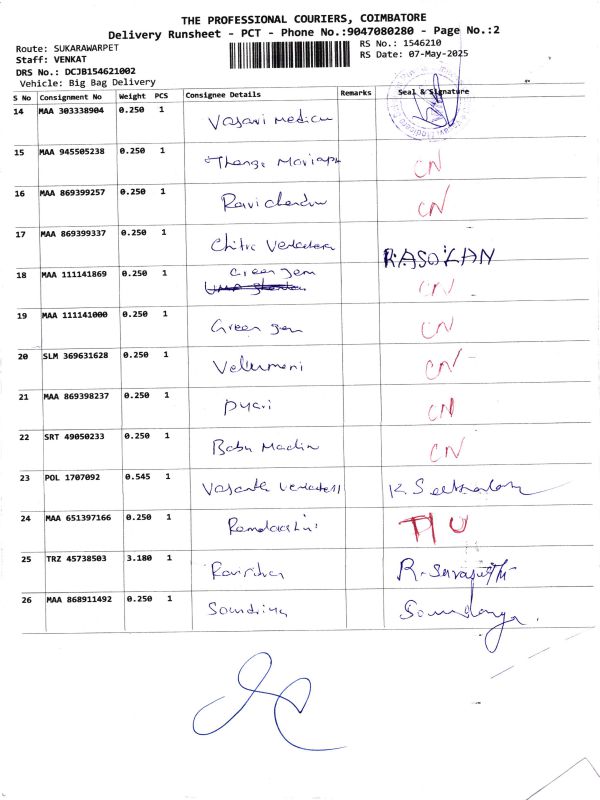 THE PROFESSIONAL COURIERS, COIMBATORE
Delivery Runsheet - PCT - Phone No.:9047080280 - Page No.:2
Route: SUKARAWARPET
RS No.: 1546210
Staff: VENKAT
RS Date: 07-May-2025
DRS No.: DCJB154621002
Vehicle: Big Bag Delivery
S No Consignment No Weight PCS Consignee Details Remarks Seal & Signature
14 MAA 303338904 0.250 1 Vasavi Medicu
15 MAA 945505238 0.250 1 CN
16 MAA 869399257 0.250 1 Ravichandru CN
17 MAA 869399337 0.250 1 Chitra RASOLAN
18 MAA 111141869 0.250 1 Green gem CN
19 MAA 111141000 0.250 1 Green gem CN
20 SLM 369631628 0.250 1 Velumani CN
21 MAA 869398237 0.250 1 Dyari CN
22 SRT 49050233 0.250 1 Babu CN
23 POL 1707092 0.545 1 Vasanth K.
24 MAA 651397166 0.250 1
25 TRZ 45738503 3.180 1 R.
26 MAA 868911492 0.250 1